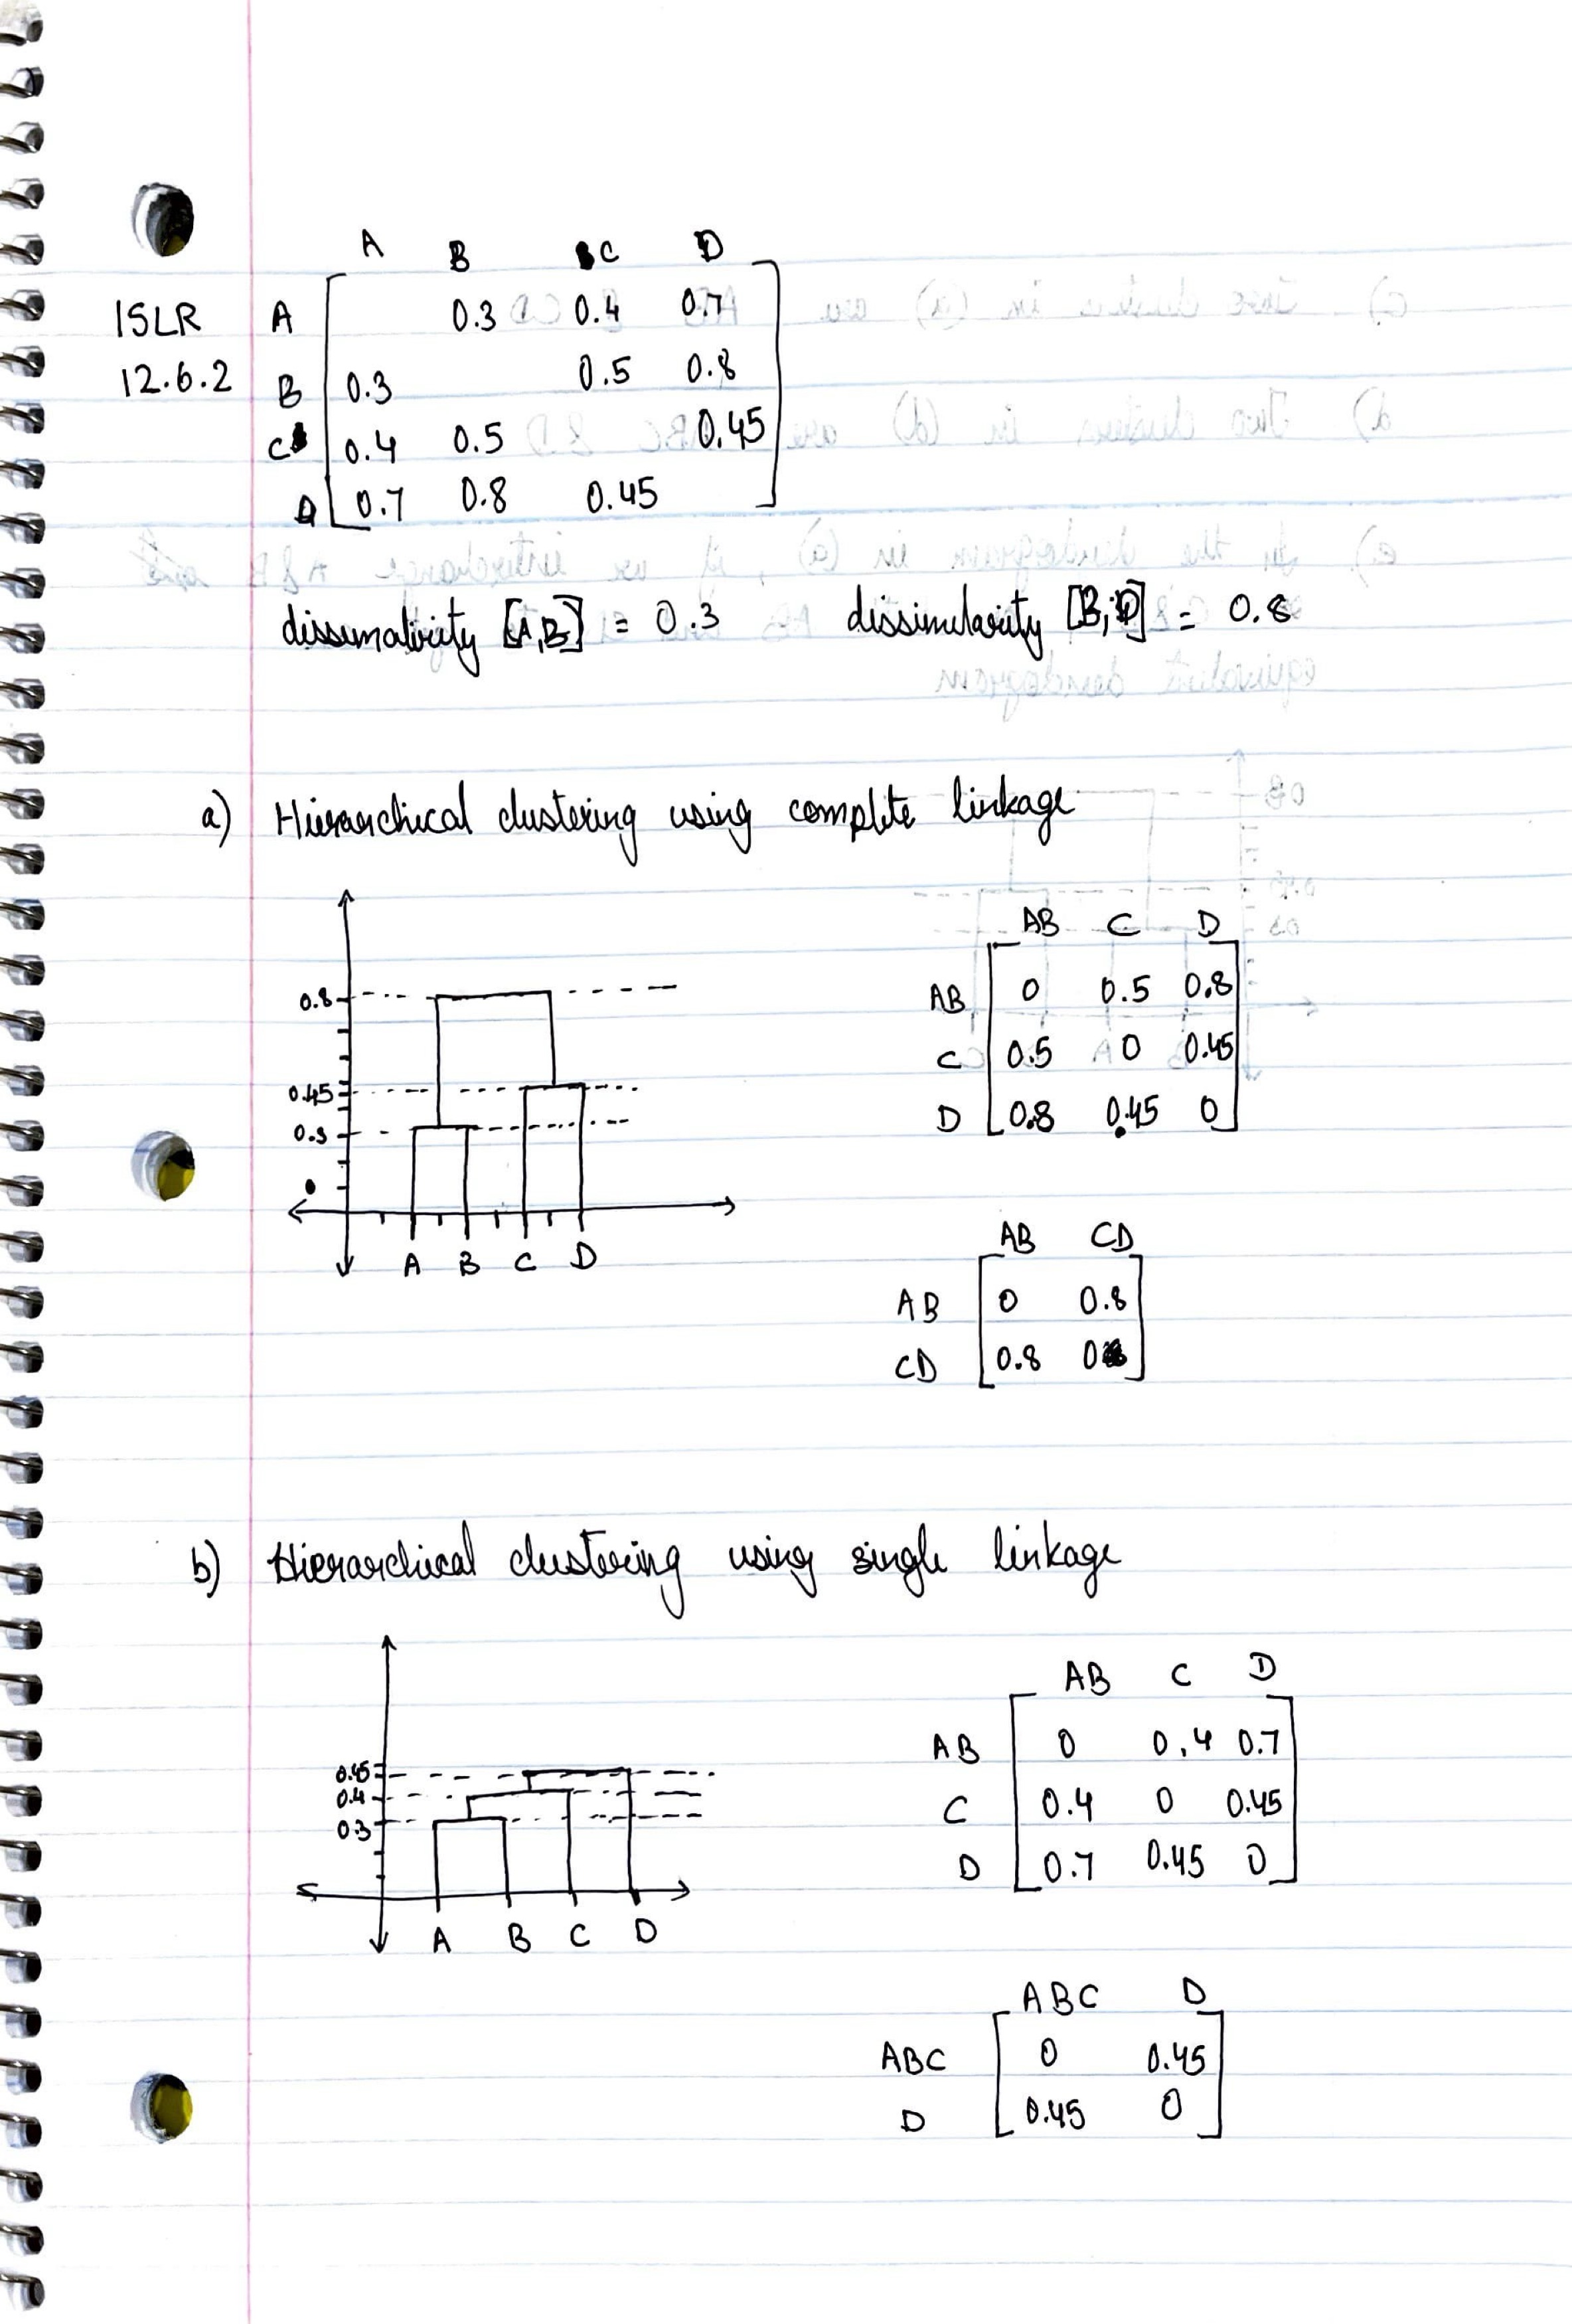 A B C D
ISLR A 0.3 0.4 0.7
12.6.2 B 0.3 0.5 0.8
C 0.4 0.5 0.45
D 0.7 0.8 0.45
dissimalirity [A,B] = 0.3 dissimilarity [B,D] = 0.8
a) Hierarchical clustering using complete linkage
0.8
0.45
0.3
A B C D
AB C D
AB 0 0.5 0.8
C 0.5 0 0.45
D 0.8 0.45 0
AB CD
AB 0 0.8
CD 0.8 0
b) Hierarchical clustering using single linkage
0.45
0.4
0.3
A B C D
AB C D
AB 0 0.4 0.7
C 0.4 0 0.45
D 0.7 0.45 0
ABC D
ABC 0 0.45
D 0.45 0